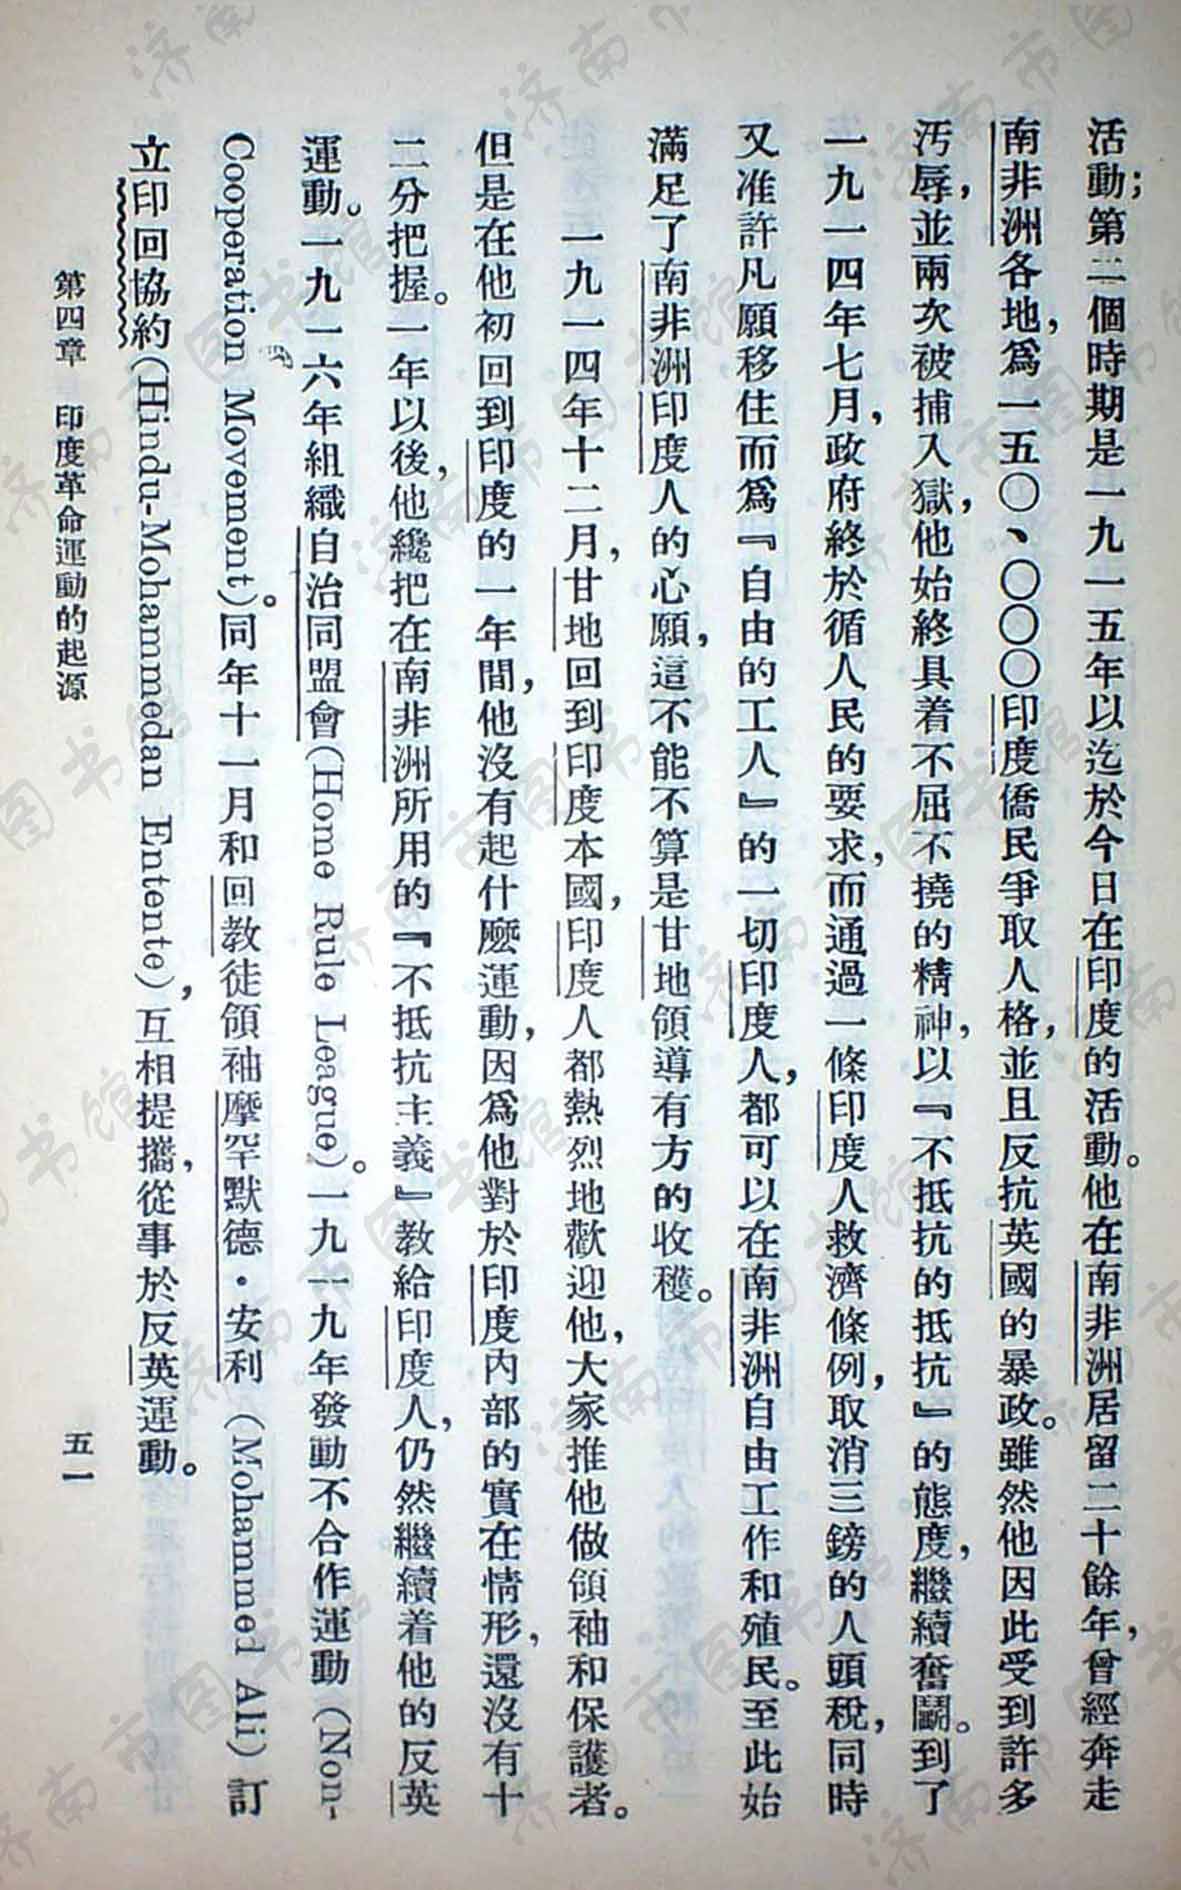 活動；第二個時期是一九一五年以迄於今日在印度的活動。他在南非洲居留二十餘年，曾經奔走
南非洲各地，爲一五〇、〇〇〇印度僑民爭取人格，並且反抗英國的暴政。雖然他因此受到許多
污辱，並兩次被捕入獄，他始終具着不屈不撓的精神，以『不抵抗的抵抗』的態度，繼續奮鬭。到了
一九一四年七月，政府終於循人民的要求，而通過一條印度人救濟條例，取消三鎊的人頭稅，同時
又准許凡願移住而爲『自由的工人』的一切印度人，都可以在南非洲自由工作和殖民。至此始
滿足了南非洲印度人的心願，這不能不算是甘地領導有方的收穫。
一九一四年十二月，甘地回到印度本國，印度人都熱烈地歡迎他，大家推他做領袖和保護者。
但是在他初回到印度的一年間，他沒有起什麼運動，因爲他對於印度內部的實在情形，還沒有十
二分把握。一年以後，他纔把在南非洲所用的『不抵抗主義』教給印度人，仍然繼續着他的反英
運動。一九一六年組織自治同盟會（Home Rule League）。一九一九年發動不合作運動（Non-
Cooperation Movement）。同年十一月和回教徒領袖摩罕默德·安利（Mohammed Ali）訂
立印回協約（Hindu-Mohammedan Entente），互相提攜，從事於反英運動。
第四章 印度革命運動的起源
五一
济南市图书馆